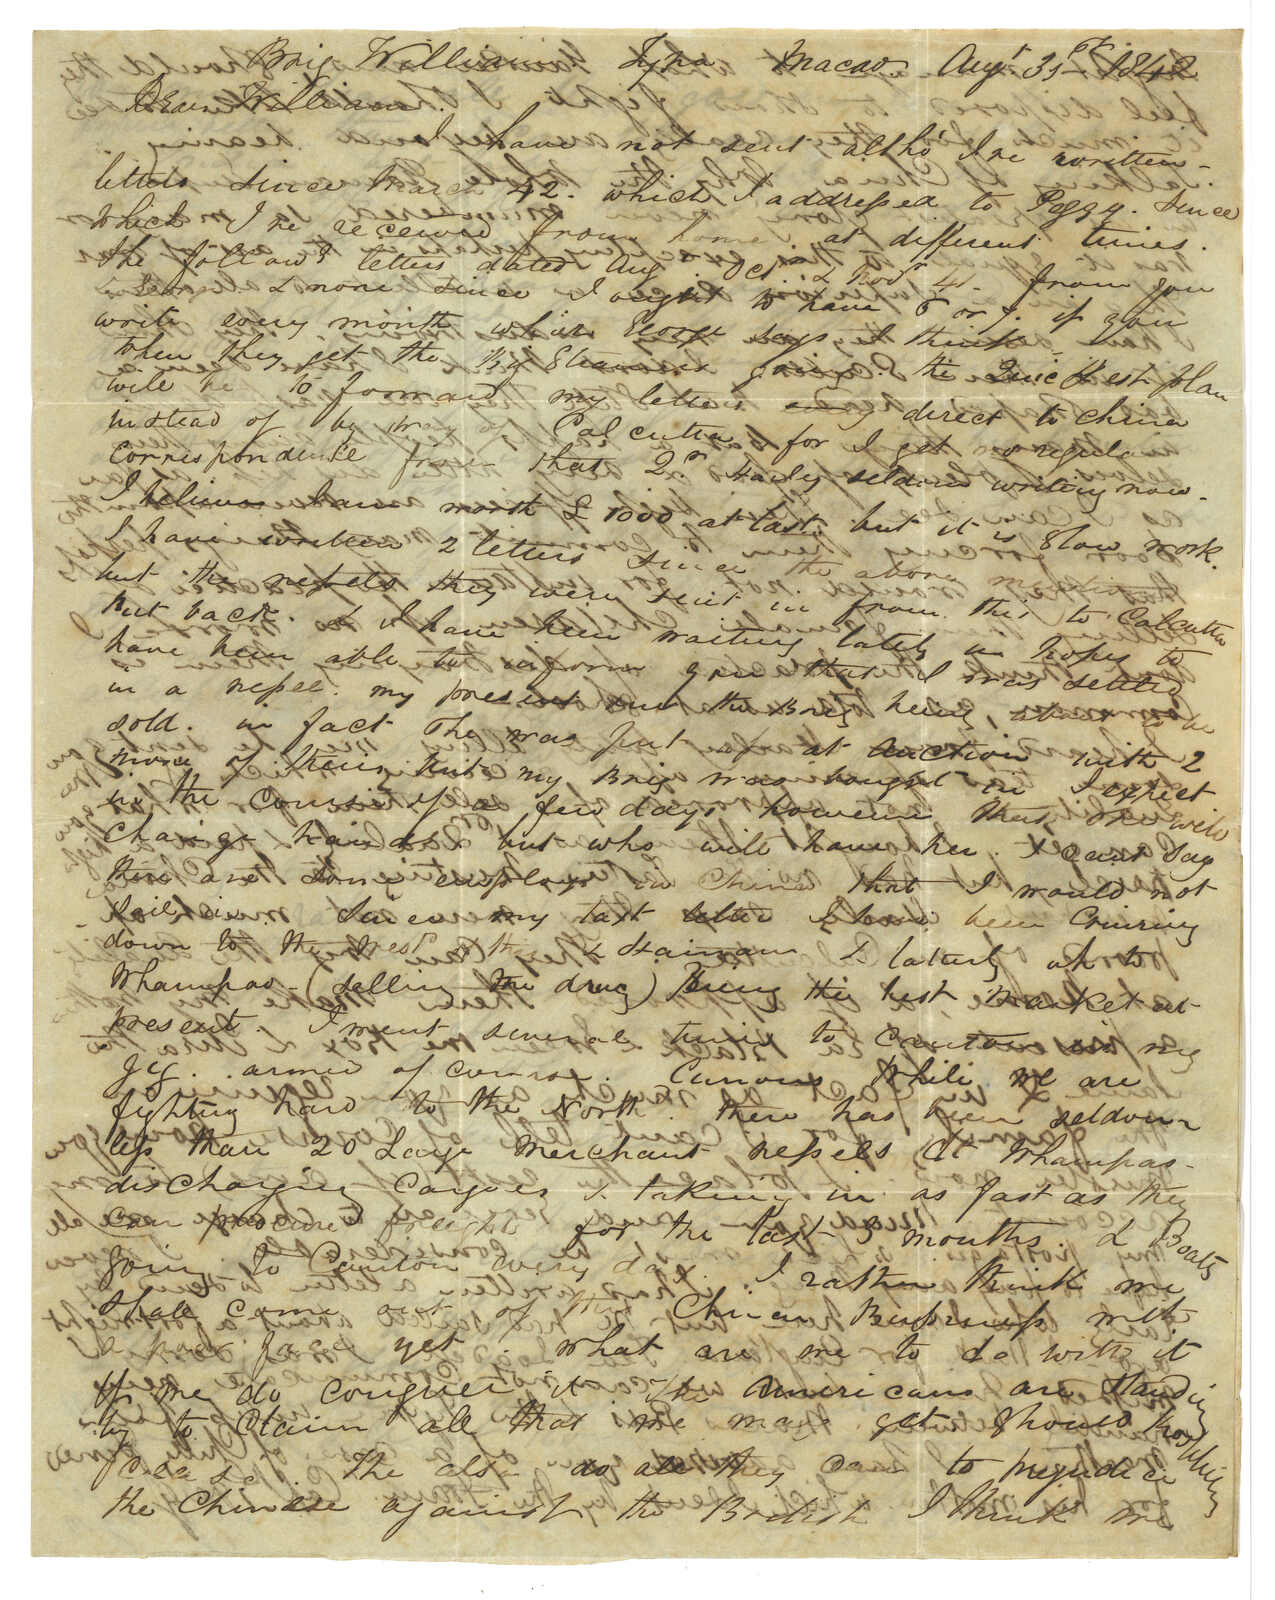 Brig William Typa Macao Augt 3d 1842
Dear William.
I have not sent altho' I've written
letters since March 42. which I addressed to Peggy. Since
which I've received from home at different times.
the follow'g letters dated Aug Oct & Novr 41. from you
& none since I ought to have 6 or 7. if you
write every month which George says I think
when they get the Steamers going. the Quickest plan
will be to forward my letters direct to China
instead of by way Calcutta for I get no regular
correspondence from that Qr. seldom writing now.
I believe I am worth £1000 at last. but it is slow work.
I have written 2 letters since the above mention
but the vessels they were sent in from this to Calcutta
put back. & I have been waiting lately in hopes to
have been able to inform you that I was settled
in a vessel. my present one the Brig being about to be
sold. in fact she was put up at Auction with 2
more of them but my Brig was bought in I expect
in the course of a few days however that she will
change hands but who will have her. I cant say
there are some employs in China that I would not
sail in. Since my last letter I have been Cruizing
down to the West & Hainan & latterly up to
Whampoa - (selling the drug) Being the best market at
present. I went several times to Canton in my
Gig. armed of course. Curious While we are
fighting hard to the North. there has been seldom
less than 20 Large Merchant vessels at Whampoa
discharging Cargoes & taking in as fast as they
can procure freight for the last 3 months. & Boats
going to Canton every day. I rather think we
shall come out of this Chinese Business with
a poor face yet. what are we to do with it
If we do conquer it the Americans are standing
by to Claim all that we may get should hostilities
cease. The also do all they can to prejudice
the Chinese against the British I think we